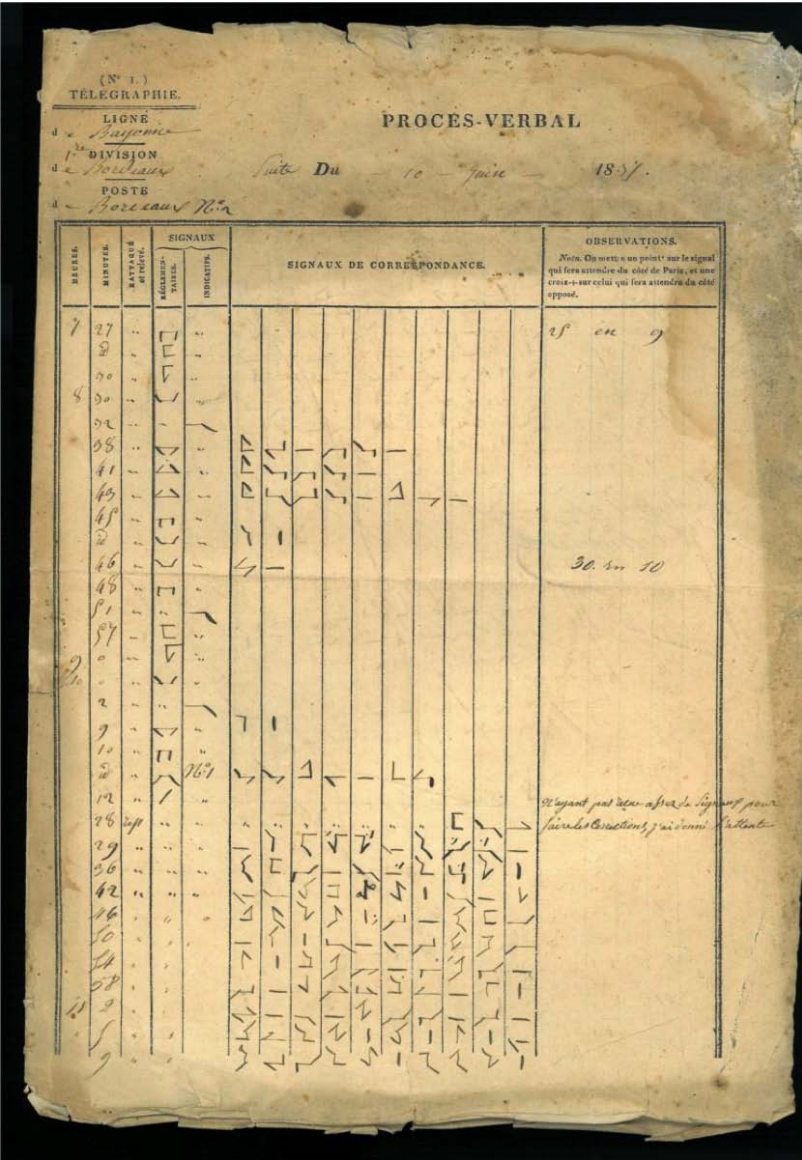 (N° 1.)
TÉLÉGRAPHIE.
LIGNE
de Bayonne
PROCÈS-VERBAL
1re DIVISION
de Bordeaux
Suite Du 10 Juin 1837.
POSTE
de Bordeaux N°2
HEURES.
MINUTES.
RATTAQUÉ et relevé.
SIGNAUX
RÉGLEMEN-TAIRES.
INDICATIFS.
SIGNAUX DE CORRESPONDANCE.
OBSERVATIONS.
Nota. On mettra un point • sur le signal
qui fera attendre du côté de Paris, et une
croix + sur celui qui fera attendre du côté
opposé.
7 27 25 en 9
d
30
8 30
32
38
41
43
45
d
46 30. en 10
48
51
57
9 0
10
2
9
10
d N°1
12 N'ayant pas assez de signaux pour
28 faire les corrections, j'ai donné l'attente
29
36
42
46
50
54
58
11 2
5
9